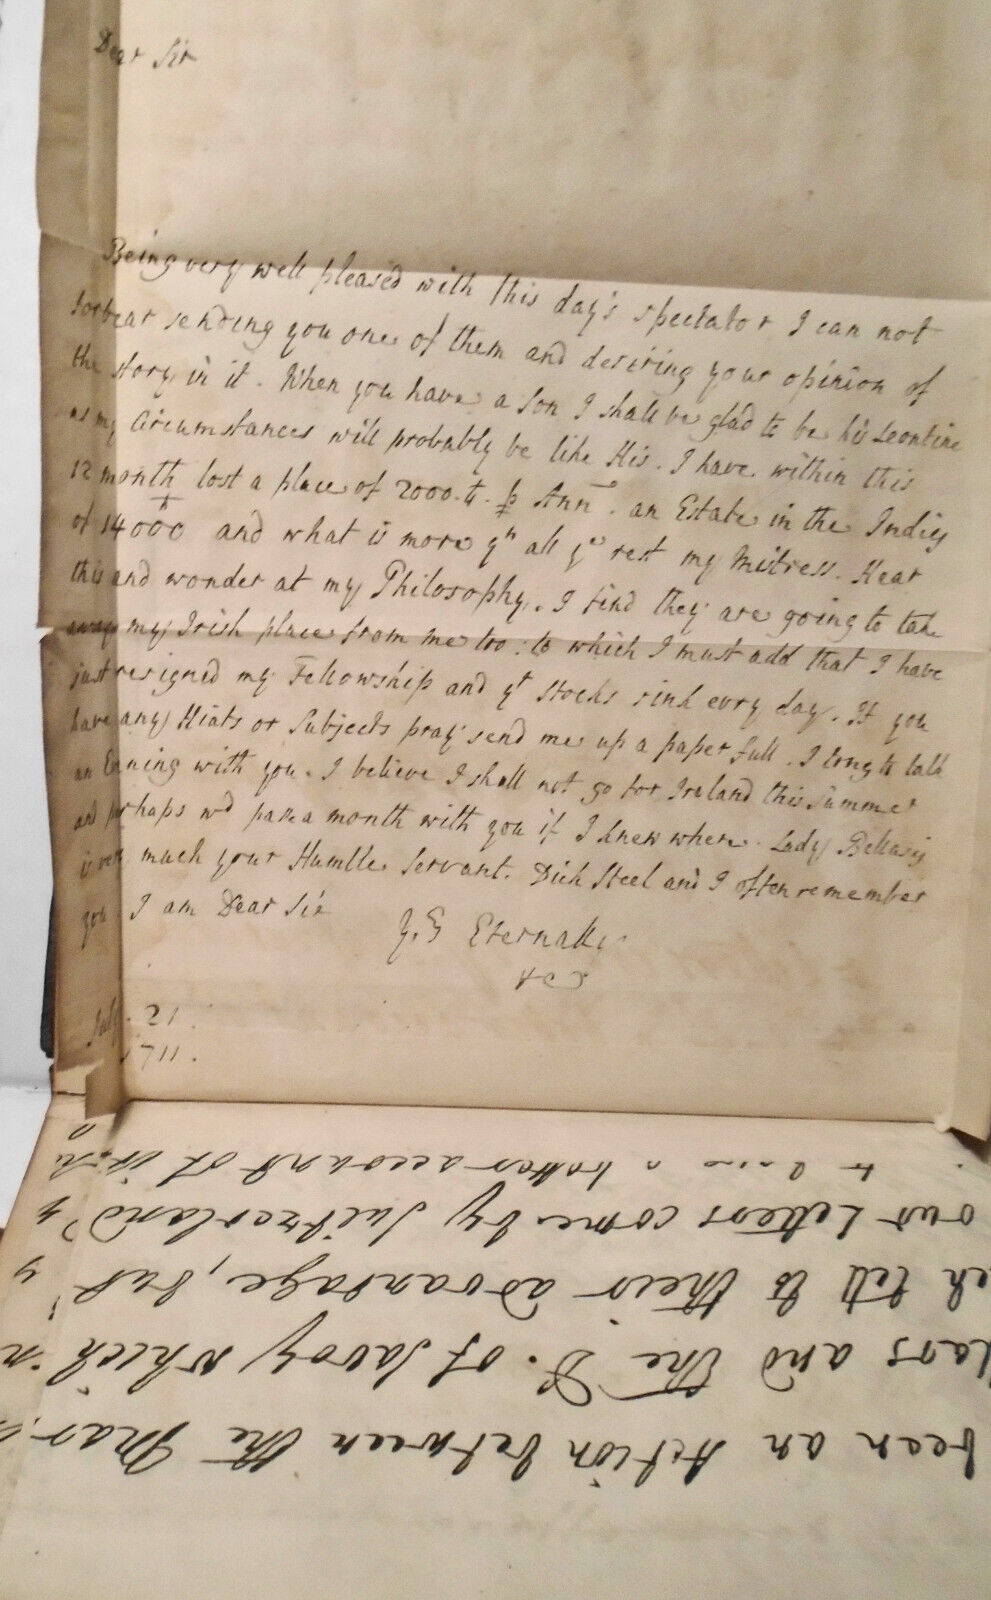 Dear Sir
Being very well pleased with this day's spectator I can not
forbear sending you one of them and desiring your opinion of
the story in it. When you have a Son I shall be glad to be his Leontine
as my Circumstances will probably be like His. I have within this
12 month lost a place of 2000 ℔. ꝑ Ann. an Estate in the Indies
of 14000 and what is more yn all ye rest my Mistress. Hear
this and wonder at my Philosophy. I find they are going to take
away my Irish place from me too: to which I must add that I have
just resigned my Fellowship and yt stocks sink evry day. If you
have any Hints or Subjects pray send me up a paper full. I long to talk
an Evning with you. I believe I shall not go for Ireland this Summer
and perhaps wd passe a month with you if I knew where. Lady Bellasis
is very much your Humble Servant. Dick Steel and I often remember
you I am Dear Sir
Yrs Eternally
July. 21
1711.
been an Action between the
and the D. of Savoy which
tell to their advantage, but
our Letters come by Suitzerland
to have a better account of it